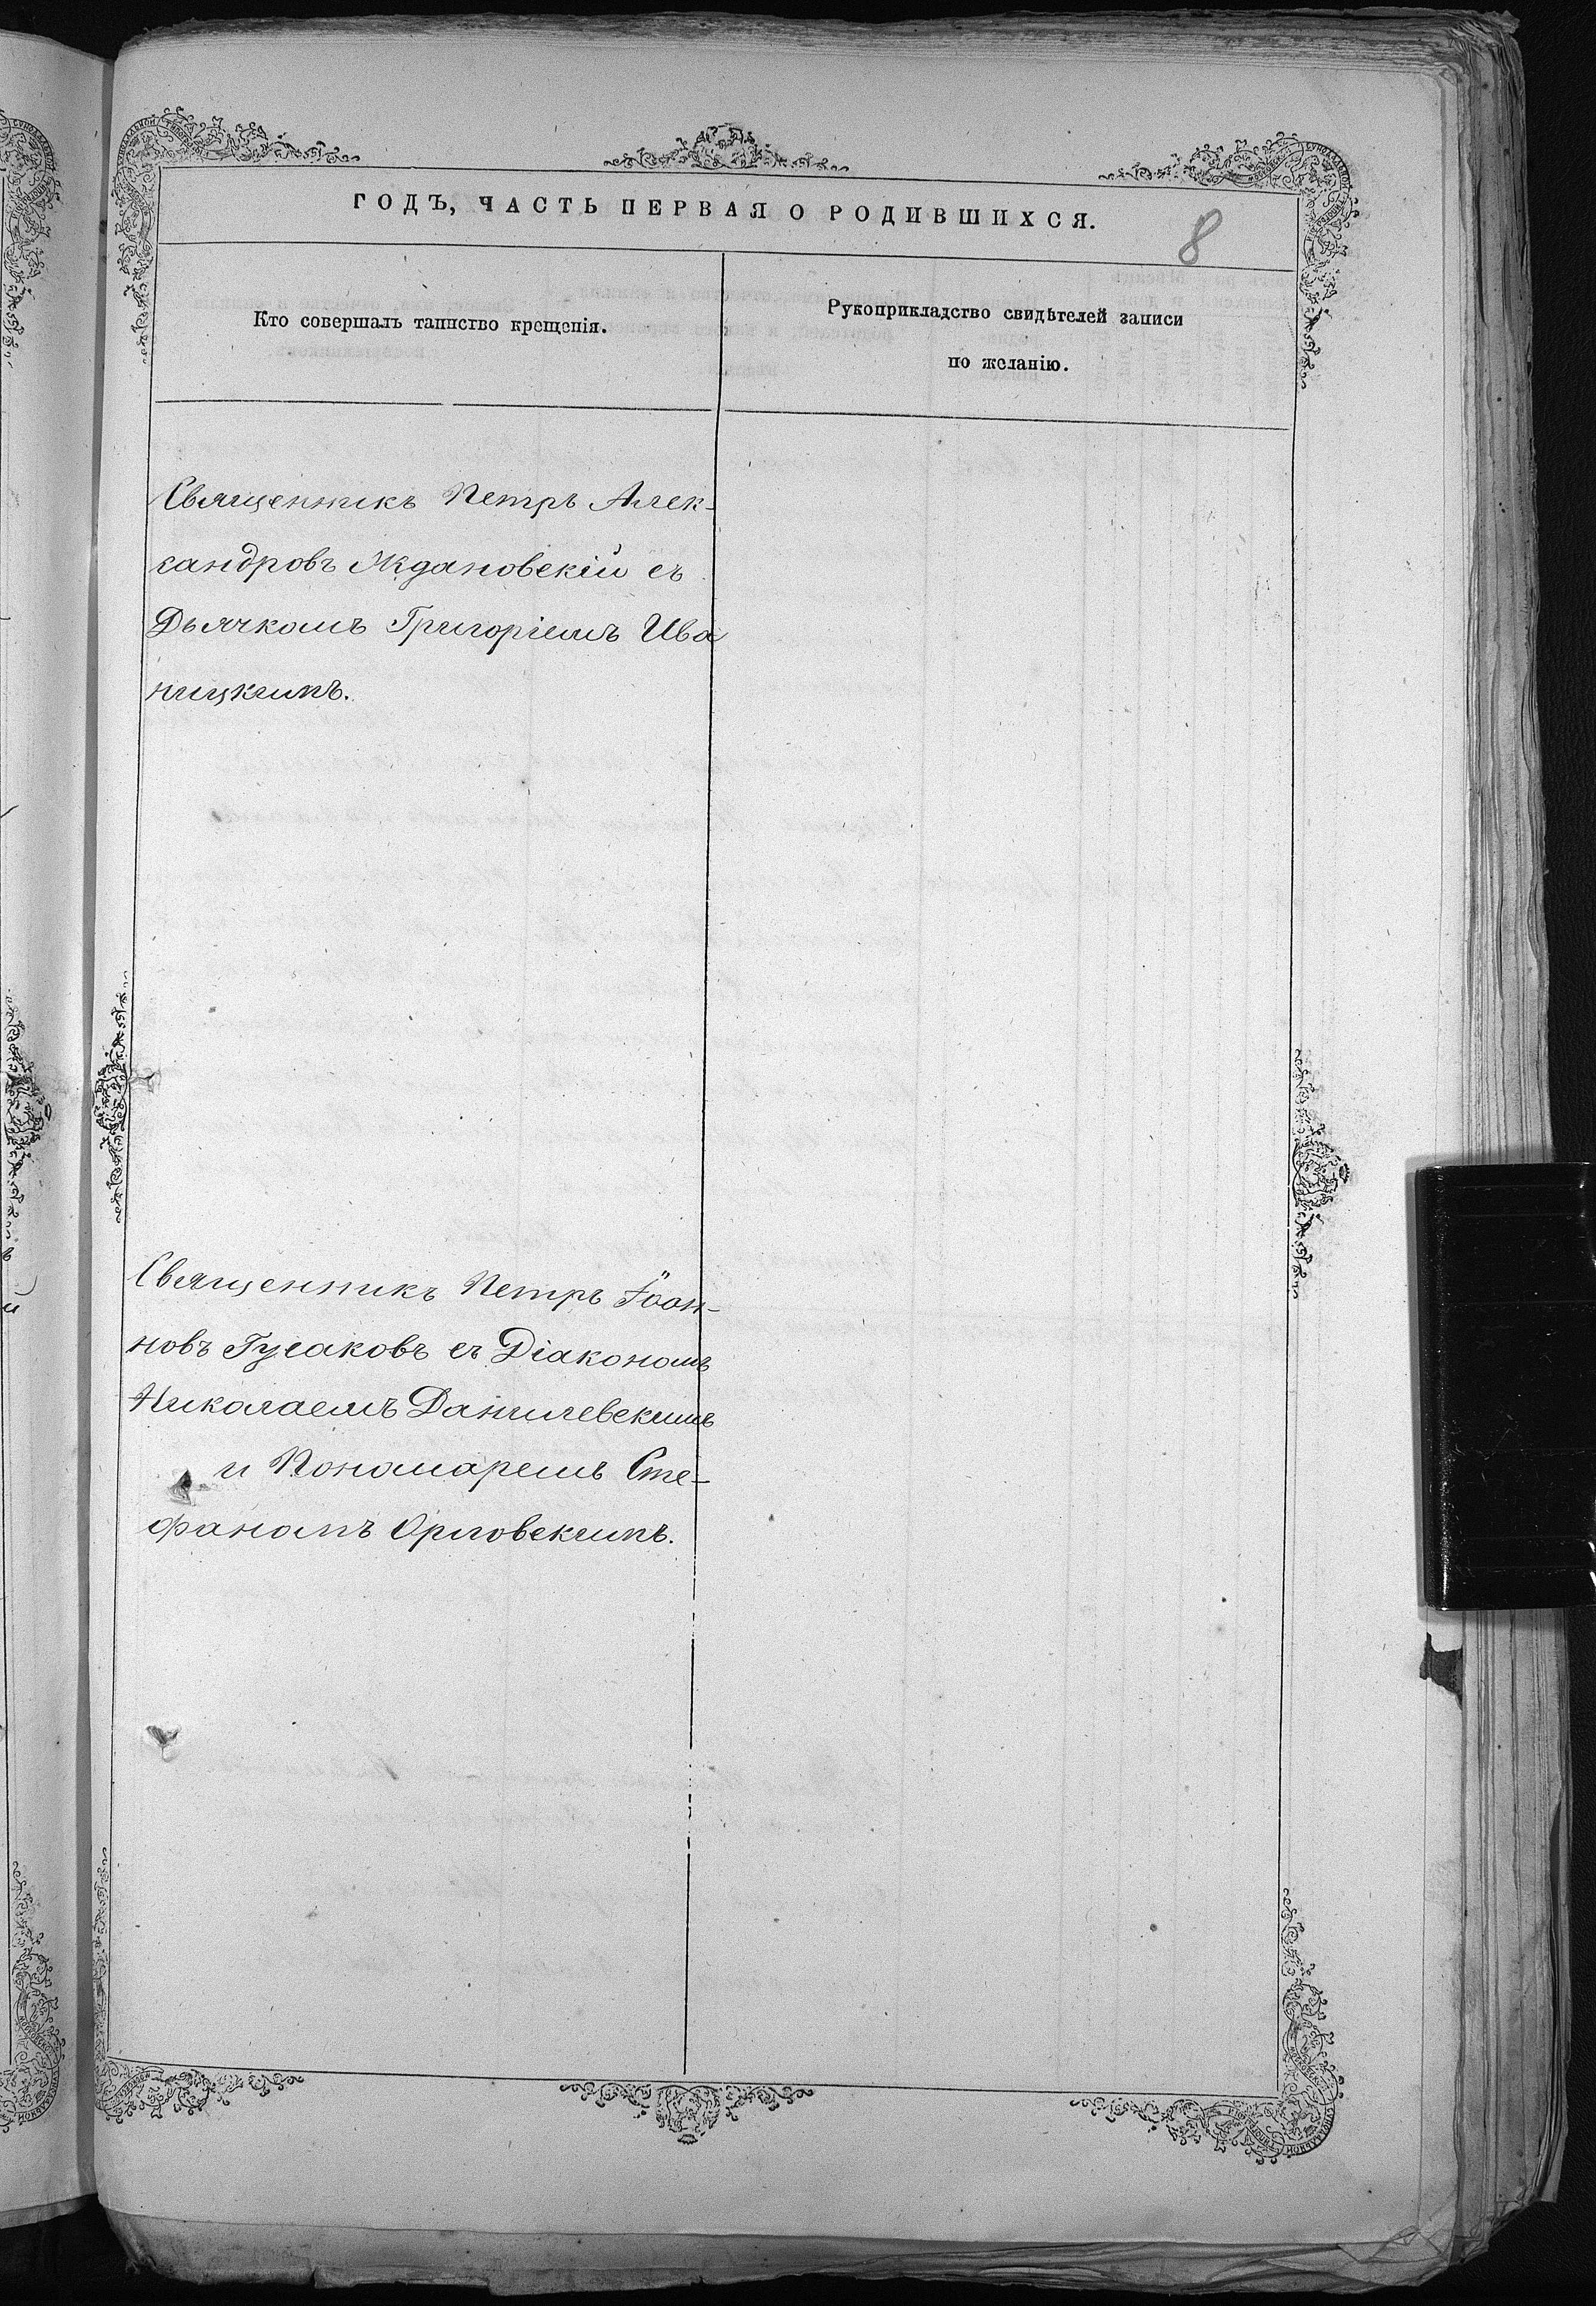 ГОДЪ, ЧАСТЬ ПЕРВАЯ О РОДИВШИХСЯ.
8
Кто совершалъ таинство крещенія.
Рукоприкладство свидѣтелей записи
по желанію.
Священникъ Петръ Алек-
сандровъ Ждановскій съ
Дьячкомъ Григоріемъ Ива
ницкимъ.
Священникъ Петръ Іоан-
новъ Гусаковъ съ Діакономъ
Николаемъ Данилевскимъ
и Пономаремъ Сте-
фаномъ Орловскимъ.